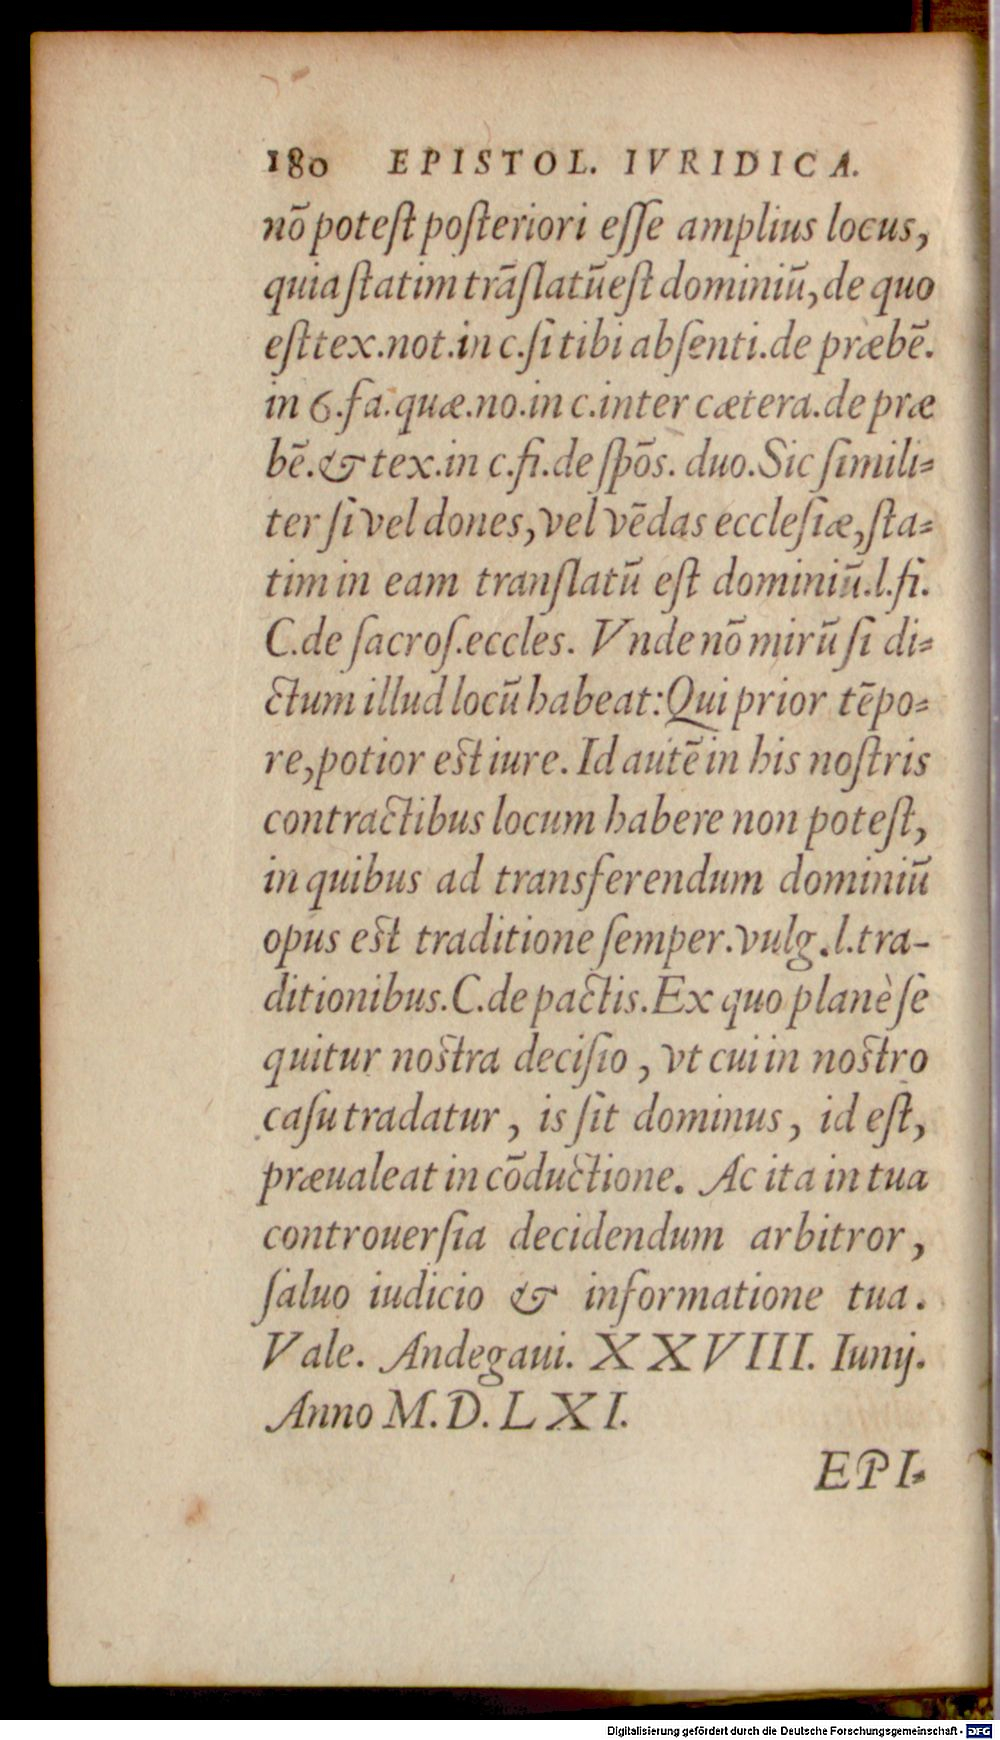 180 EPISTOL. IVRIDICA.
nō potest posteriori esse amplius locus,
quia statim trāslatū est dominiū, de quo
est tex. not. in c. si tibi absenti. de præbē.
in 6. fa. quæ. no. in c. inter cætera. de præ
bē. & tex. in c. fi. de spōs. duo. Sic simili-
ter si vel dones, vel vēdas ecclesiæ, sta-
tim in eam translatū est dominiū. l. fi.
C. de sacros. eccles. Vnde nō mirū si di-
ctum illud locū habeat: Qui prior tēpo-
re, potior est iure. Id autē in his nostris
contractibus locum habere non potest,
in quibus ad transferendum dominiū
opus est traditione semper. vulg. l. tra-
ditionibus. C. de pactis. Ex quo planè se
quitur nostra decisio, vt cui in nostro
casu tradatur, is sit dominus, id est,
præualeat in cōductione. Ac ita in tua
controuersia decidendum arbitror,
saluo iudicio & informatione tua.
Vale. Andegaui. XXVIII. Iunij.
Anno M. D. LXI.
EPI-
Digitalisierung gefördert durch die Deutsche Forschungsgemeinschaft - DFG